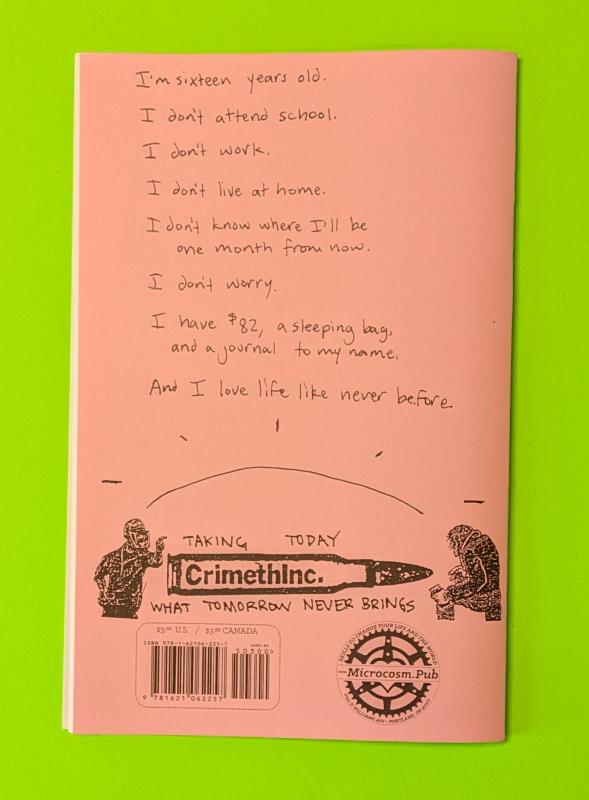 I'm sixteen years old.
I don't attend school.
I don't work.
I don't live at home.
I don't know where I'll be
one month from now.
I don't worry.
I have $82, a sleeping bag,
and a journal to my name.
And I love life like never before.
TAKING TODAY
CrimethInc.
WHAT TOMORROW NEVER BRINGS
$3.00 U.S. / $3.00 CANADA
ISBN 978-1-62106-225-7
50300>
9 781621 062257
SKILLS TO CHANGE YOUR LIFE AND THE WORLD
Microcosm.Pub
N WILLIAMS AVE • PORTLAND, OR 97227